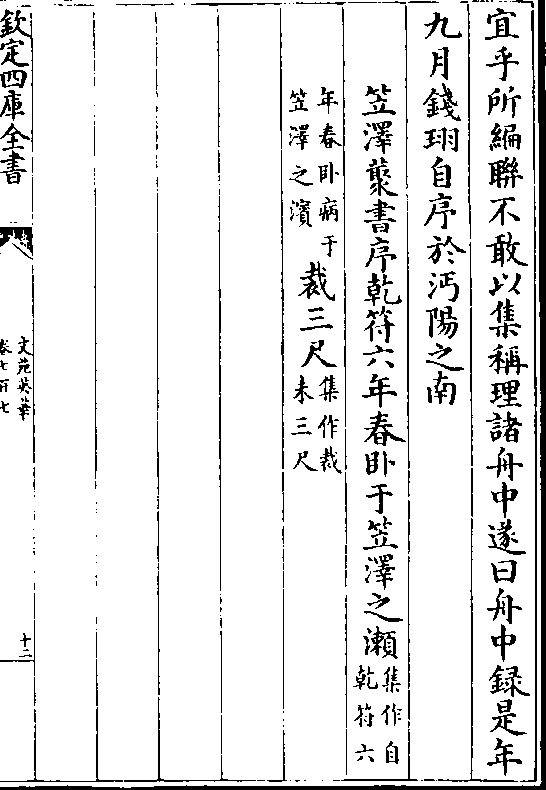 宜乎所編聯不敢以集稱理諸舟中遂曰舟中録是年
九月錢珝自序於沔陽之南
笠澤藂書序乾符六年春卧于笠澤之瀬集作自乾符六
年春卧病于笠澤之濱裁三尺集作裁未三尺
欽定四庫全書
文苑英華
卷七百七
十二